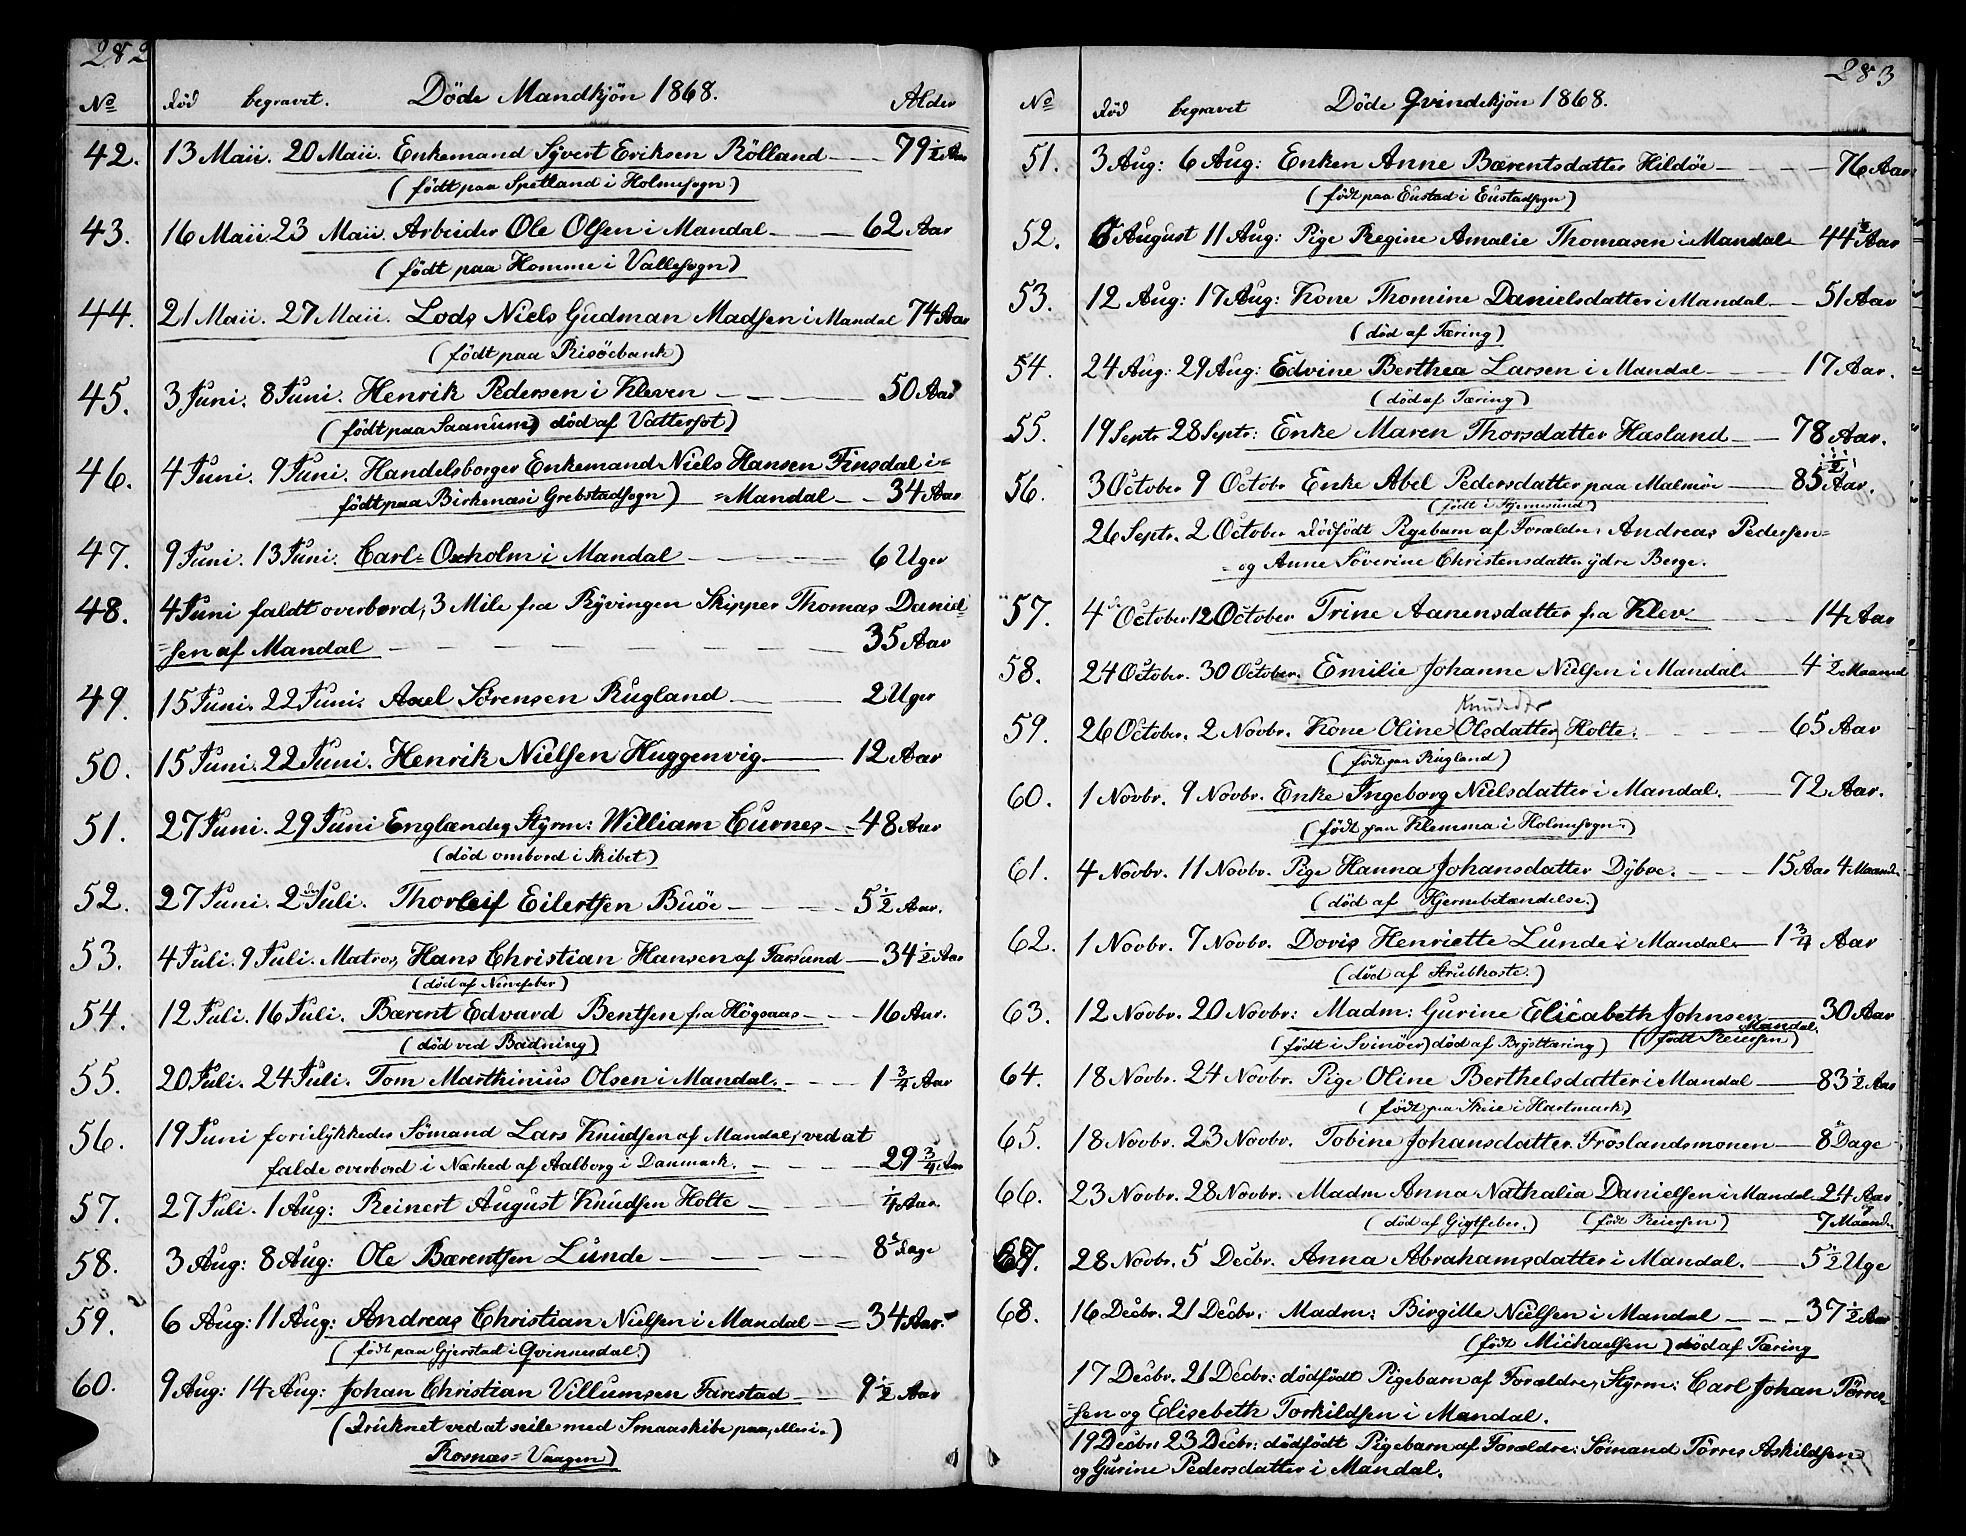 282
No død begravet. Döde Mandkjön 1868. Alder
42. 13 Maii. 20 Maii. Enkemand Syvert Eriksen Rölland — 79 1/2 Aar
(födt paa Spetland i Holmesogn)
43. 16 Maii 23 Maii. Arbeider Ole Olsen i Mandal — 62 Aar
(födt paa Homme i Vallesogn)
44. 21 Maii. 27 Maii. Lods Niels Gudman Madsen i Mandal 74 Aar
(födt paa Risöebank)
45. 3 Juni. 8 Juni. Henrik Pedersen i Kleven — 50 Aar
(födt paa Saanum) död af Vattersot)
46. 4 Juni. 9 Juni. Handelsborger Enkemand Niels Hansen Finsdal i=
födt paa Birkenæs i Grebstadsogn) =Mandal — 34 Aar
47. 9 Juni. 13 Juni. Carl Oxholm i Mandal — 6 Uger
48. 4 Juni faldt overbord, 3 Mile fra Ryvingen Skipper Thomas Daniel
=sen af Mandal — 35 Aar
49. 15 Juni. 22 Juni. Axel Sörensen Rugland — 2 Uger
50. 15 Juni. 22 Juni. Henrik Nielsen Huggenvig — 12 Aar
51. 27 Juni. 29 Juni Englænder, Styrm: William Curnes — 48 Aar
(död ombord i Skibet)
52. 27 Juni. 2den Juli. Thorleif Eilertsen Buöe — 5 1/2 Aar.
53. 4 Juli. 9 Juli. Matros, Hans Christian Hansen af Farsund — 34 1/2 Aar
(död af Nervefeber)
54. 12 Juli. 16 Juli. Bærent Edvard Bentsen fra Högsaas — 16 Aar.
(död ved Badning)
55. 20 Juli. 24 Juli. Tom Marthinius Olsen i Mandal. — 1 3/4 Aar
56. 19 Juni forulykkedes Sömand Lars Knudsen af Mandal, ved at
falde overbord i Nærhed af Aalborg i Danmark. — 29 3/4 Aar
57. 27 Juli. 1 Aug: Reinert August Knudsen Holte — 1/4 Aar.
58. 3 Aug: 8 Aug: Ole Bærentsen Lunde — 8 Dage
59. 6 Aug: 11 Aug: Andreas Christian Nielsen i Mandal — 34 Aar.
(födt paa Gjerstad i Qvinnesdal.)
60. 9 Aug: 14 Aug: Johan Christian Villumsen Farestad — 9 1/2 Aar
(Druknet ved at seile med Smaaskibe paa,
Kosnæs=Vaagen)
283
No död begravet Döde Qvindekjön 1868.
51. 3 Aug: 6 Aug: Enken Anne Bærentsdatter Hildöe — 76 Aar:
(födt paa Eustad i Eustadsogn)
52. 6 August 11 Aug: Pige Regine Amalie Thomasen i Mandal 44 1/2 Aar
53. 12 Aug: 17 Aug: Kone Thomine Danielsdatter i Mandal — 51 Aar
(död af Tæring)
54. 24 Aug: 29 Aug: Edvine Berthea Larsen i Mandal — 17 Aar.
(död af Tæring)
55. 19 Septr 28 Septr: Enke Maren Thorsdatter Hasland — 78 Aar.
56. 3 October 9 Octobr Enke Abel Pedersdatter paa Malmöe — 85 1/2 Aar.
(födt i Hjernesund)
26 Septr. 2 October dödfödt Pigebarn af Forældre: Andreas Pedersen=
=og Anne Söverine Christensdatter ydre Berge.
57. 4de October 12 October Trine Aanensdatter fra Klev — 14 Aar
58. 24 October. 30 October. Emilie Johanne Nielsen i Mandal. 4 1/2 Maaned
Knudsdtr
59. 26 October. 2 Novbr. Kone Oline (Olsdatter) Holte. — 65 Aar
(födt paa Rugland)
60. 1 Novbr. 9 Novbr. Enke Ingeborg Nielsdatter i Mandal. — 72 Aar.
(födt paa Klemma i Holmesogn.)
61. 4 Novbr. 11 Novbr. Pige Hanna Johansdatter Dyboe. — 15 Aar 4 Maaned.
(död af Hjernebetændelse.)
62. 1 Novbr. 7 Novbr. Doris Henriette Lunde i Mandal. — 1 3/4 Aar
(död af Strubhoste.)
63. 12 Novbr. 20 Novbr: Madm: Gurine Elisabeth Johnsen — 30 Aar
Mandal.
(födt i Svinöer) död af Brysttæring) (födt Reiersen)
64. 18 Novbr. 24 Novbr. Pige Oline Berthelsdatter i Mandal — 83 1/2 Aar
(födt paa Skeie i Hartmark)
65. 18 Novbr. 23 Novbr. Tobine Johansdatter Fröslandsmonen — 8 Dage
66. 23 Novbr. 28 Novbr. Madm Anna Nathalia Danielsen i Mandal 24 Aar
og
(död af Gigtfeber.) (födt Reiersen) 7 Maaned.
67. 28 Novbr. 5 Decbr. Anna Abrahamsdatter i Mandal. — 5 1/2 Uge
68. 16 Decbr. 21 Decbr. Madm: Birgitte Nielsen i Mandal — 37 1/2 Aar
(födt Michaelsen) död af Tæring
17 Decbr. 21 Decbr: dödfödt Pigebarn af Forældre, Styrm: Carl Johan Törres=
=sen og Elisebeth Torkildsen i Mandal.
19 Decbr: 23 Decbr: dödfödt Pigebarn af Forældre: Sömand Törres Askildsen
og Gurine Pedersdatter i Mandal.